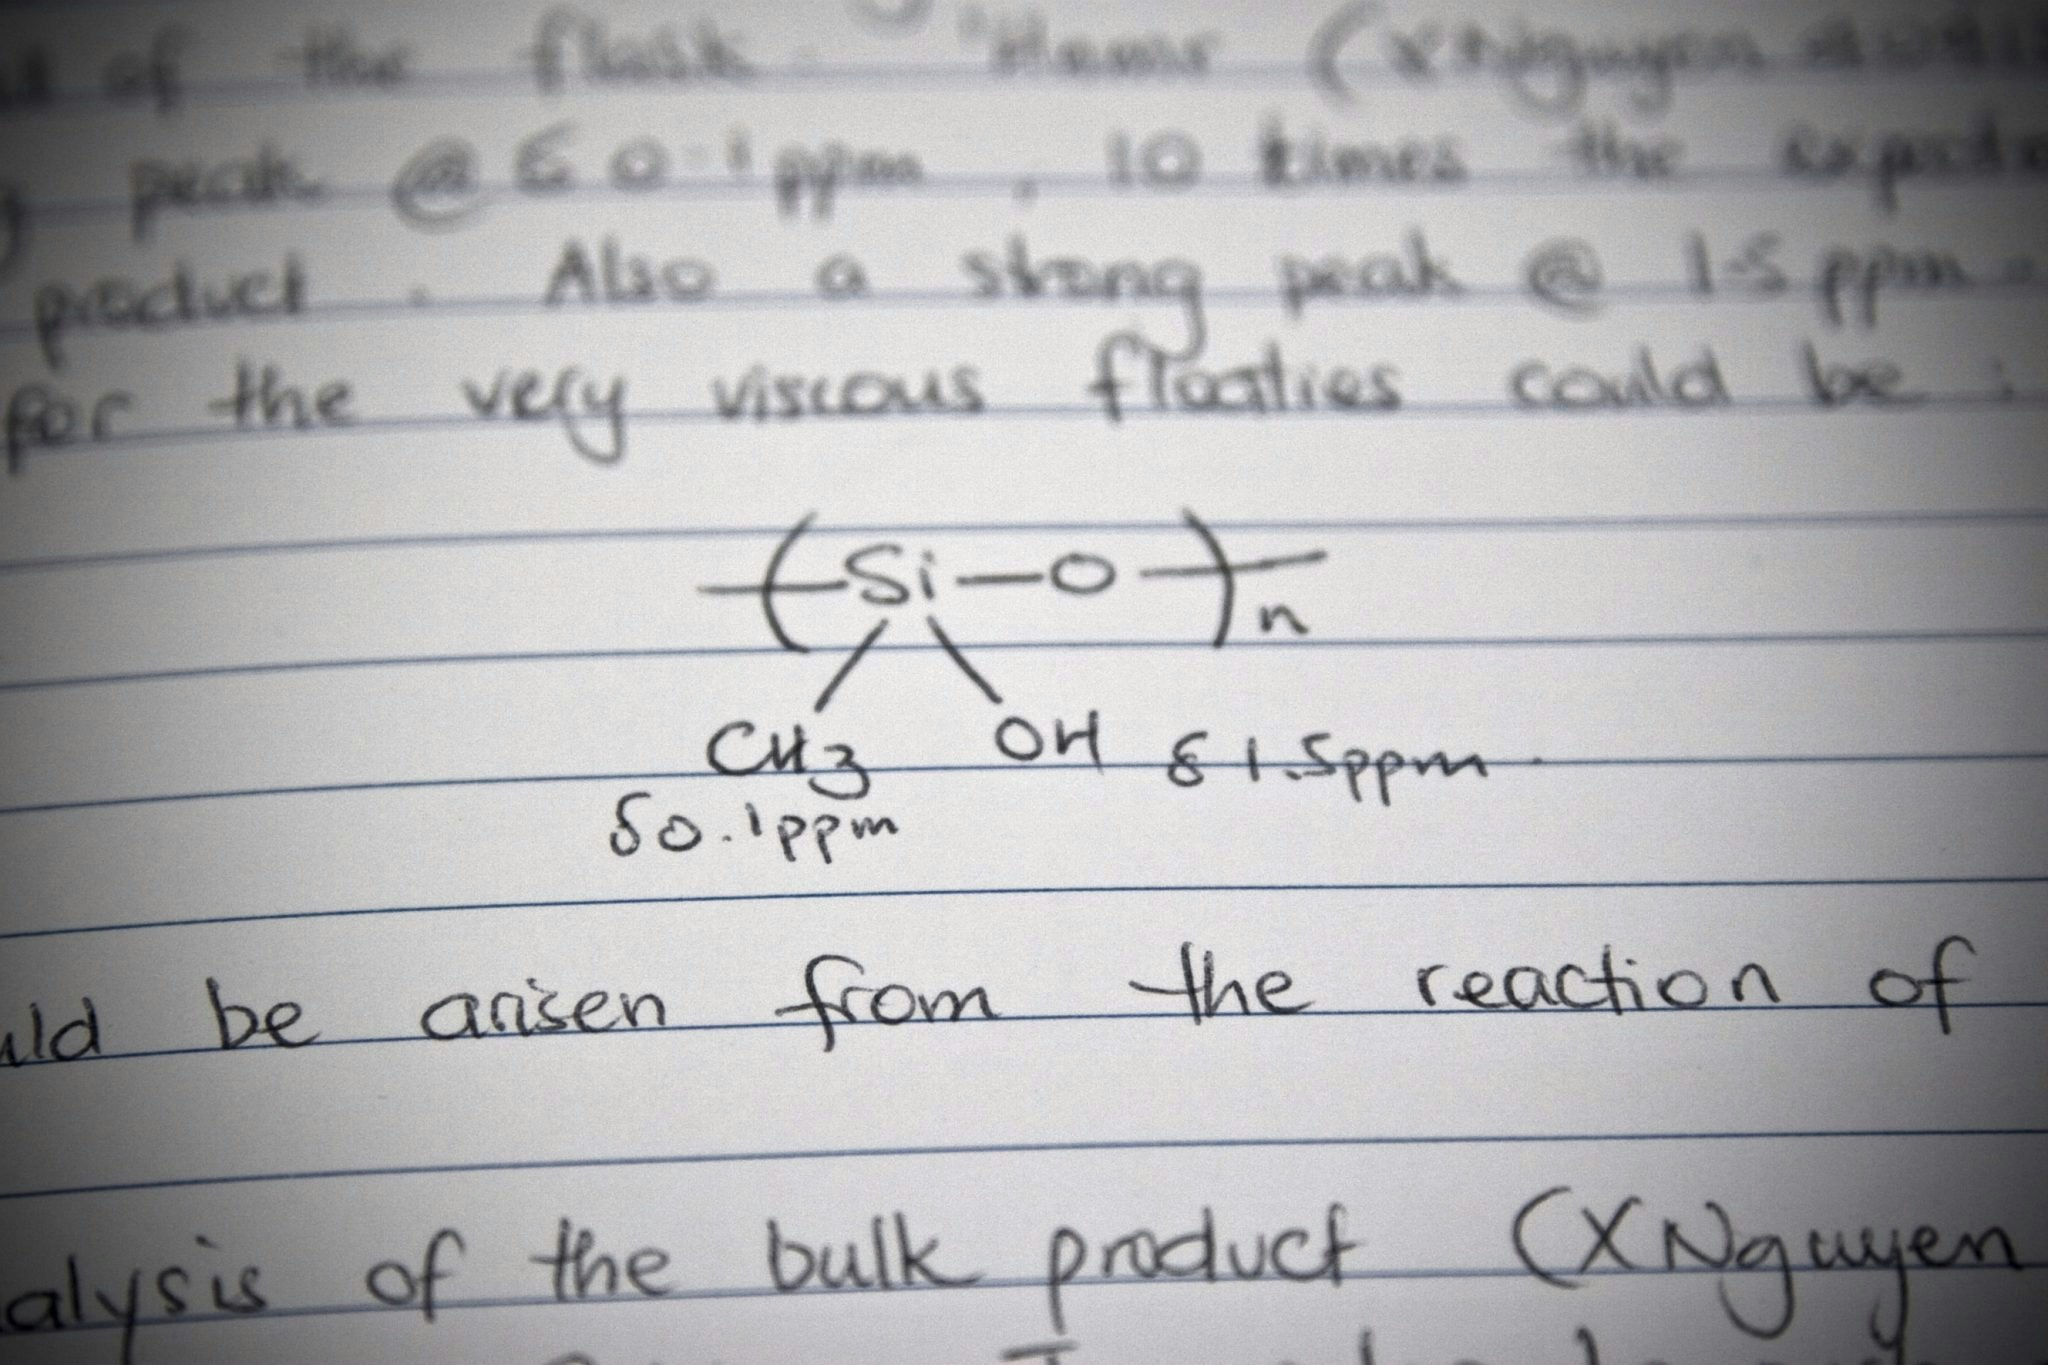 of the flask. "Hnmr (XNguyen
peak @ δ 0.1 ppm, 10 times the
product. Also a strong peak @ 1.5 ppm.
for the very viscous floaties could be :
( Si — O ) n
CH3 OH δ 1.5ppm.
δ 0.1ppm
be arisen from the reaction of
alysis of the bulk product (XNguyen